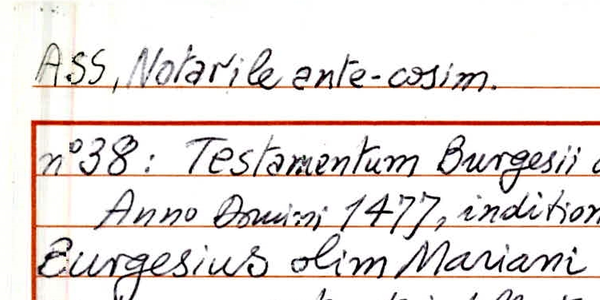 ASS, Notarile ante-cosim.
n°38: Testamentum Burgesii
Anno Domini 1477, indition
Burgesius olim Mariani